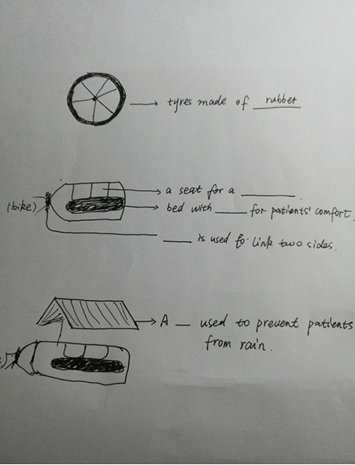 tyres made of rubber
a seat for a ______
(bike)
bed with ______ for patients' comfort.
______ is used to link two sides.
A __ used to prevent patients
from rain.